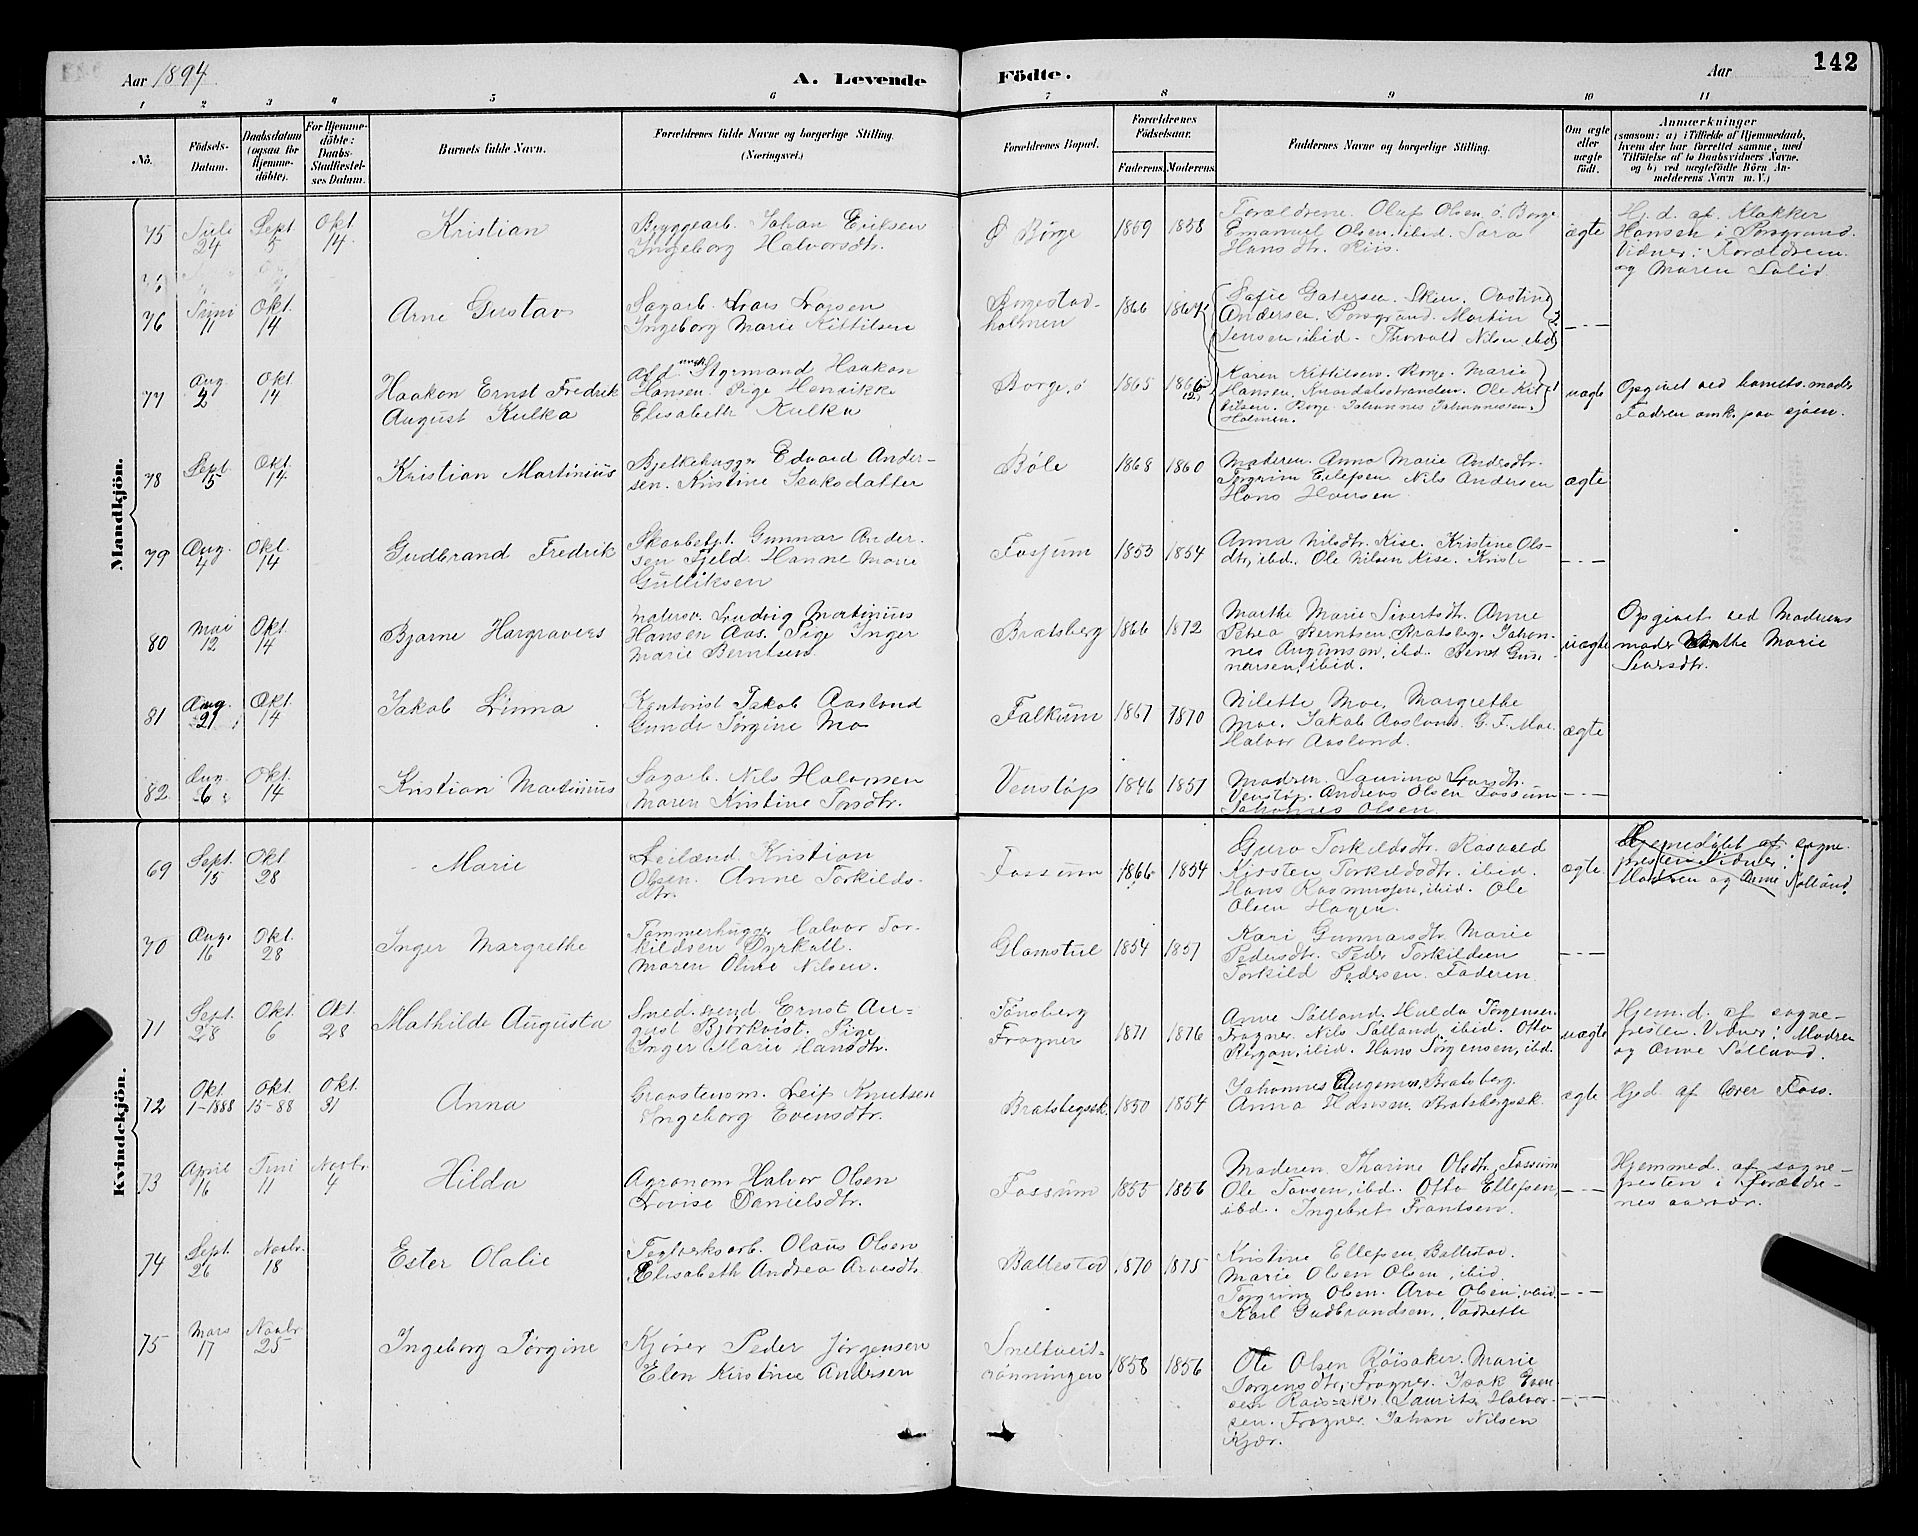 Aar 1894
A. Levende
Födte.
Aar
142
1 2 3 4 5 6 7 8 9 10 11
No.
Födsels-Datum.
Daabsdatum (ogsaa for Hjemme-döbte).
For Hjemme-döbte: Daabs-Stadfæstel-ses Datum.
Barnets fulde Navn.
Forældrenes fulde Navne og borgerlige Stilling.
(Næringsvei.)
Forældrenes Bopæl.
Forældrenes Födselsaar.
Faderens. Moderens.
Faddernes Navne og borgerlige Stilling.
Om ægte eller uægte födt.
Anmærkninger
(saasom: a) i Tilfælde af Hjemmedaab,
hvem der har forrettet samme, med
Tilföielse af to Daabsvidners Navne.
og b) ved uægtefödte Börn An-
melderens Navn m. V.)
Mandkjön.
75 Juli 24 Sept 5 Okt 14. Kristian
Byggearb. Johan Eriksen
Ingeborg Halvorsdtr.
Ø Börge 1859 1858
Forældrene. Oluf Olsen, ö. Borge
Emanuel Olsen, ibid. Sara
Hansdtr. Riis.
ægte
Hj.d. af Klokker
Hansen i Porsgrund.
Vidner: Forældrene
og Maren Solid.
76 Juni 11 Okt. 14 Arne Gustav
Sagarb. Lars Larsen
Ingeborg Marie Kittilsen
Borgestad-
holmen 1866 1864
Sofie Gatersen. Skien.
Andersen. Porsgrund. Martin
Jensen, ibid. Thorvald Nilsen, ibid
— - —
77 Aug. 2 Okt. 14 Haakon Ernst Fredrik
August Kulka
Styrmand Haakon
Hansen. Pige Henrikke
Elisabeth Kulka
Borge, ö 1865 1866
Karen Kittilsen. Borge. Marie
Hansen. Knardalsstranden. Ole Kit-
tilsen. Borge. Johannes Johannessen,
Holmen.
uægte
Opgivet ved barnets moder
Fadren omk. paa sjøen.
78 Sept. 5 Okt. 14. Kristian Martinius
Bjelkehugger Edvard Ander-
sen. Kristine Isaksdatter
Böle 1868 1860
Moderen. Anna Marie Andersdtr.
Torgrim Ellefsen Nils Andersen
Hans Hansen.
ægte
79 Aug. 4 Okt. 14 Gudbrand Fredrik
Skovbetjt. Gunnar Ander-
sen Fjeld. Hanne Marie
Gulliksen
Fossum 1853 1854
Anna Nilsdtr. Kise. Kristine Ols-
dtr, ibd. Ole Nilsen Kise.
— - —
80 Mai 12 Okt 14 Bjarne Hargravers
Matros Ludvig Martinius
Hansen Aas. Pige Inger
Marie Berntsen
Bratsberg 1866 1872
Marthe Marie Sivertsdtr. Anne
Petrea Berntsen, Bratsberg. Johan-
nes Augunsen, ibd. Bernt Gun-
narsen, ibid.
uægte
Opgivet ved Moderens
moder Marthe Marie
Siversdtr.
81 Aug. 21 Okt. 14 Jakob Linna
Kontorist Jakob Aaslund
Gunda Jørgine Mo
Falkum 1867 1870
Nilette Moe, Margrethe
Moe. Jakob Aaslund. G. F. Moe.
Halvor Aaslund.
ægte
82 Aug. 6 Okt. 14 Kristian Martinius
Sagarb. Nils Halvorsen
Maren Kristine Torsdtr.
Venstöp 1846 1851
Madren. Laurina Larsdtr.
Venstöp. Andreas Olsen Fossum
Johannes Olsen.
— - —
Kvindekjön.
69 Sept. 15 Okt 28 Marie
Leilænd. Kristian
Olsen. Anne Torkilds-
dtr.
Fossum 1866 1854
Guro Torkildsdtr. Rosvald
Kirsten Torkildsdtr. ibid.
Hans Rasmussen, ibid. Ole
Olsen Hagen.
ægte
Hjemmedøbt af sogne-
presten. Vidner:
Madren og Anne Sølland.
70 Aug. 16 Okt. 28 Inger Margrethe
Tømmerhugger Halvor Tor-
kildsen Dyrkoll.
Maren Oline Nilsen.
Glamstul 1854 1851
Kari Gunnarsdtr. Marie
Pedersdtr. Peder Torkildsen
Torkild Pedersen. Faderen
— - —
71 Sept. 28 Okt. 6 Okt. 28 Mathilde Augusta
Sned.svend Ernst Au-
gust Bjørkvist. Pige
Inger Marie Hansdtr.
Tönsberg
Frogner 1871 1876
Anne Sølland. Hulda Jørgensen
Frogner. Nils Sølland, ibid. Otto
Bergan, ibid. Hans Jørgensen, ibd.
uægte
Hjem.d. af sogne-
presten. Vidner: Modren
og Anne Sølland.
72 Okt. 1-1888 Okt. 15-88 Okt 31 Anna
Graastensm. Leif Knutsen
Ingeborg Evensdtr.
Bratsbegsk. 1850 1854
Johannes Augunsen, Bratsberg.
Anna Hansen. Bratsbergsk.
ægte
Hjd. af lærer Foss.
73 April 16 Juni 11 Novbr 4 Hilda
Agronom Halvor Olsen
Lovise Danielsdtr.
Fossum 1855 1856
Moderen. Tharine Olsdtr, Fossum
Ole Tovsen, ibd. Otto Ellefsen,
ibd. Ingebret Frantsen.
— - —
Hjemmed. af sogne-
presten i forældre-
nes
74 Sept. 26 Novbr. 18 Ester Olalie
Teglverksarb. Olaus Olsen
Elisabeth Andrea Arnesdtr.
Ballestad 1870 1875
Kristine Ellefsen, Ballestad.
Marie Olsen Olsen, ibid.
Torgrim Olsen. Arne Olsen, ibid.
Karl Gudbrandsen,
— - —
75 Mars 17 Novbr. 25 Ingeborg Jørgine
Kjører Peder Jørgensen
Elen Kirstine Andersen
Sneltveit-
rønningen 1858 1856
Ole Olsen Röisaker. Marie
Jørgensdtr, Frogner. Isak Even-
sen Raisaker. Laurits Halvor-
sen. Frogner. Johan Nilsen
Kjær.
— - —